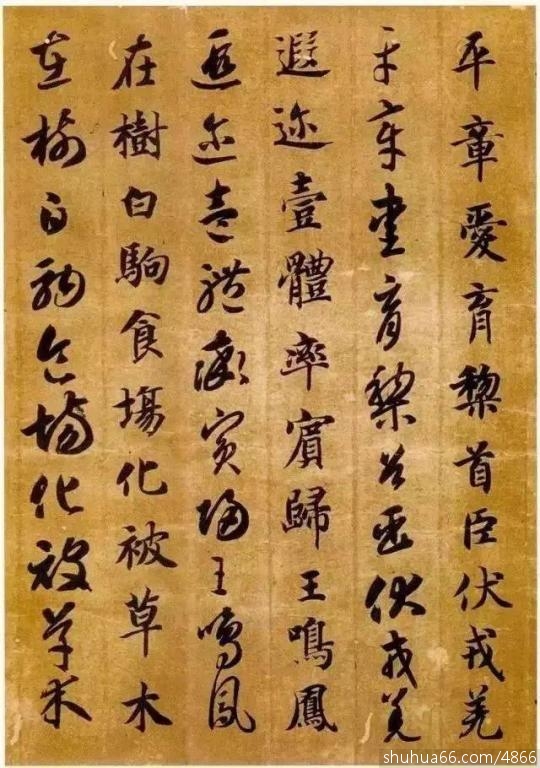 平章愛育黎首臣伏戎羌
平章愛育黎首臣伏戎羌
遐迩壹體率賓歸王鳴鳳
遐迩壹體率賓歸王鳴鳳
在樹白駒食場化被草木
在樹白駒食場化被草木
shuhua66.com/4866